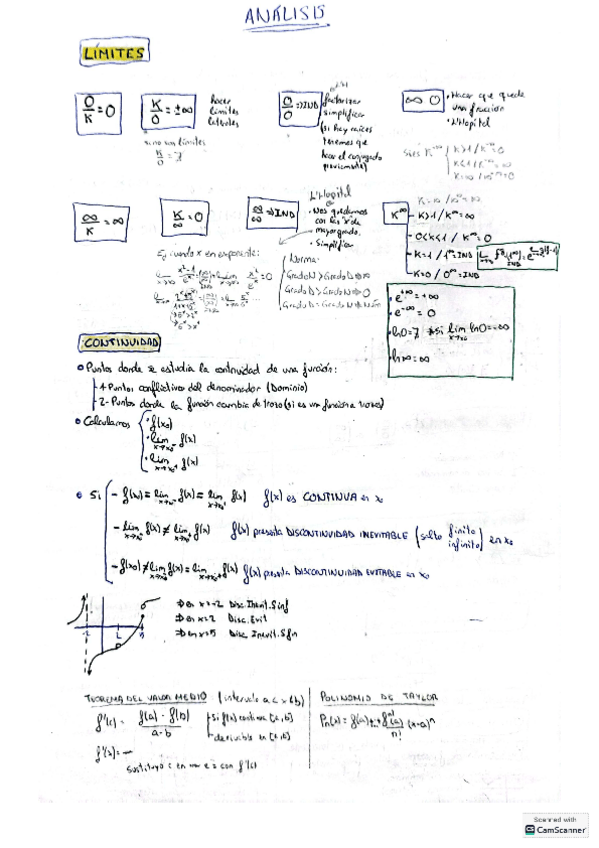 ANÁLISIS
LÍMITES
0/K = 0
K/0 = ±∞
hacer límites laterales
sino son límites
K/0 = ∄
0/0 ⇒ IND
factorizar
simplificar
(si hay raíces
tenemos que
hacer el conjugado
previamente)
∞ 0
• Hacer que quede
una fracción
• L'Hopital
∞/K = ∞
K/∞ = 0
∞/∞ ⇒ IND
L'Hopital
• Nos quedamos
con las x de
mayor grado.
• Simplificar
K^∞
- K>1 / K^∞ = ∞
- 0<K<1 / K^∞ = 0
- K=1 / 1^∞ = IND
- K=0 / 0^∞ = IND
cuando x en exponente:
Norma:
Grado N > Grado D ⇒ ∞
Grado D > Grado N ⇒ 0
Grado D = Grado N ⇒ Núm
• e^+∞ = +∞
• e^-∞ = 0
• ln0 = ∄ * si lim ln0 = -∞
• ln∞ = ∞
CONTINUIDAD
• Puntos donde se estudia la continuidad de una función:
1- Puntos conflictivos del denominador (Dominio)
2- Puntos donde la función cambia de trozo (si es una función a trozos)
• Calculamos
• f(x₀)
• lim x→x₀⁻ f(x)
• lim x→x₀⁺ f(x)
• Si
- f(x₀) = lim x→x₀⁻ f(x) = lim x→x₀⁺ f(x) f(x) es CONTINUA en x₀
- lim x→x₀⁻ f(x) ≠ lim x→x₀⁺ f(x) f(x) presenta DISCONTINUIDAD INEVITABLE (salto finito infinito) en x₀
- f(x₀) ≠ lim x→x₀⁻ f(x) = lim x→x₀⁺ f(x) f(x) presenta DISCONTINUIDAD EVITABLE en x₀
⇒ en x=-2 Disc. Inevit. S inf
⇒ en x=2 Disc. Evit
⇒ en x=5 Disc. Inevit. S fin
TEOREMA DEL VALOR MEDIO (intervalo a<x<b)
f'(c) = f(a) - f(b) / a - b
Si f(x) continua [a,b]
derivable en (a,b)
f'(x) =
sustituyo c en
con f'(c)
POLINOMIO DE TAYLOR
Pn(x) = f(a) + ... + fⁿ(a)/n! (x-a)ⁿ
Scanned with
CamScanner